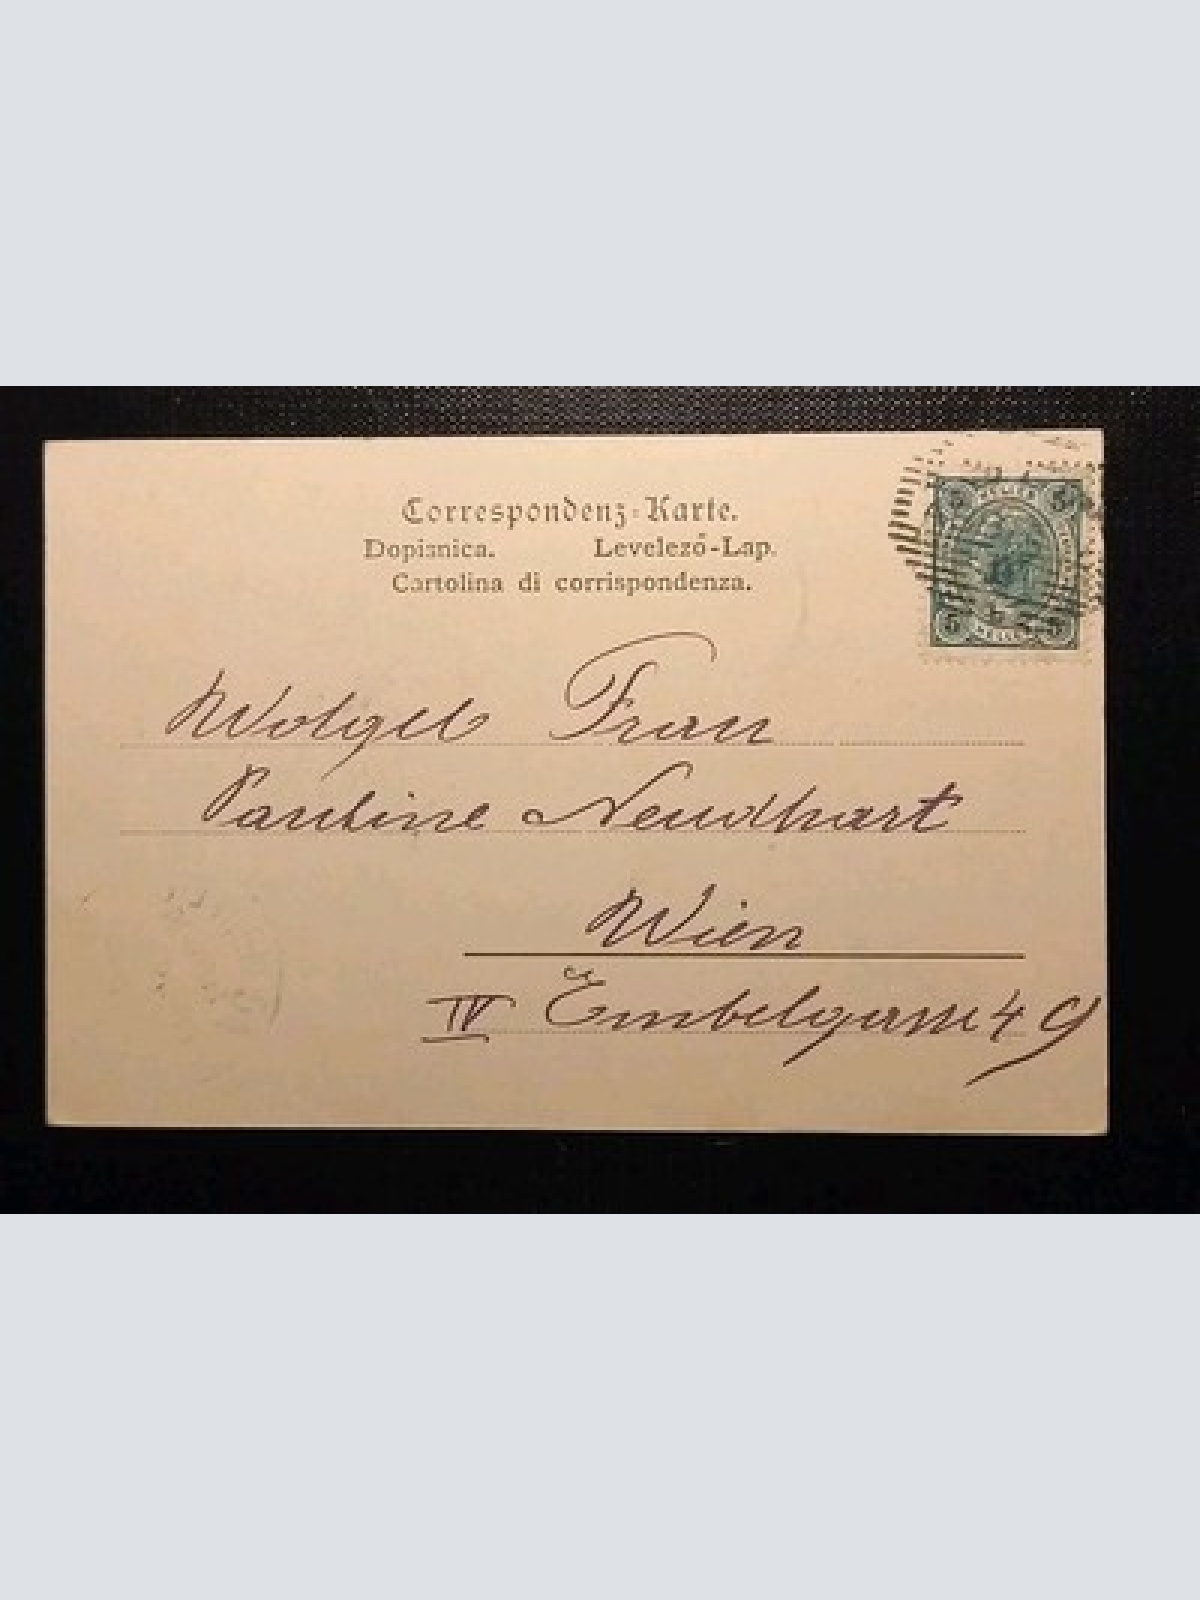 Correspondenz-Karte.
Dopisnica. Levelező-Lap.
Cartolina di corrispondenza.
5 HELLER 5
5 HELLER 5
Wolgel Frau
Pauline Neudhart
Wien
IV Embelgasse 49